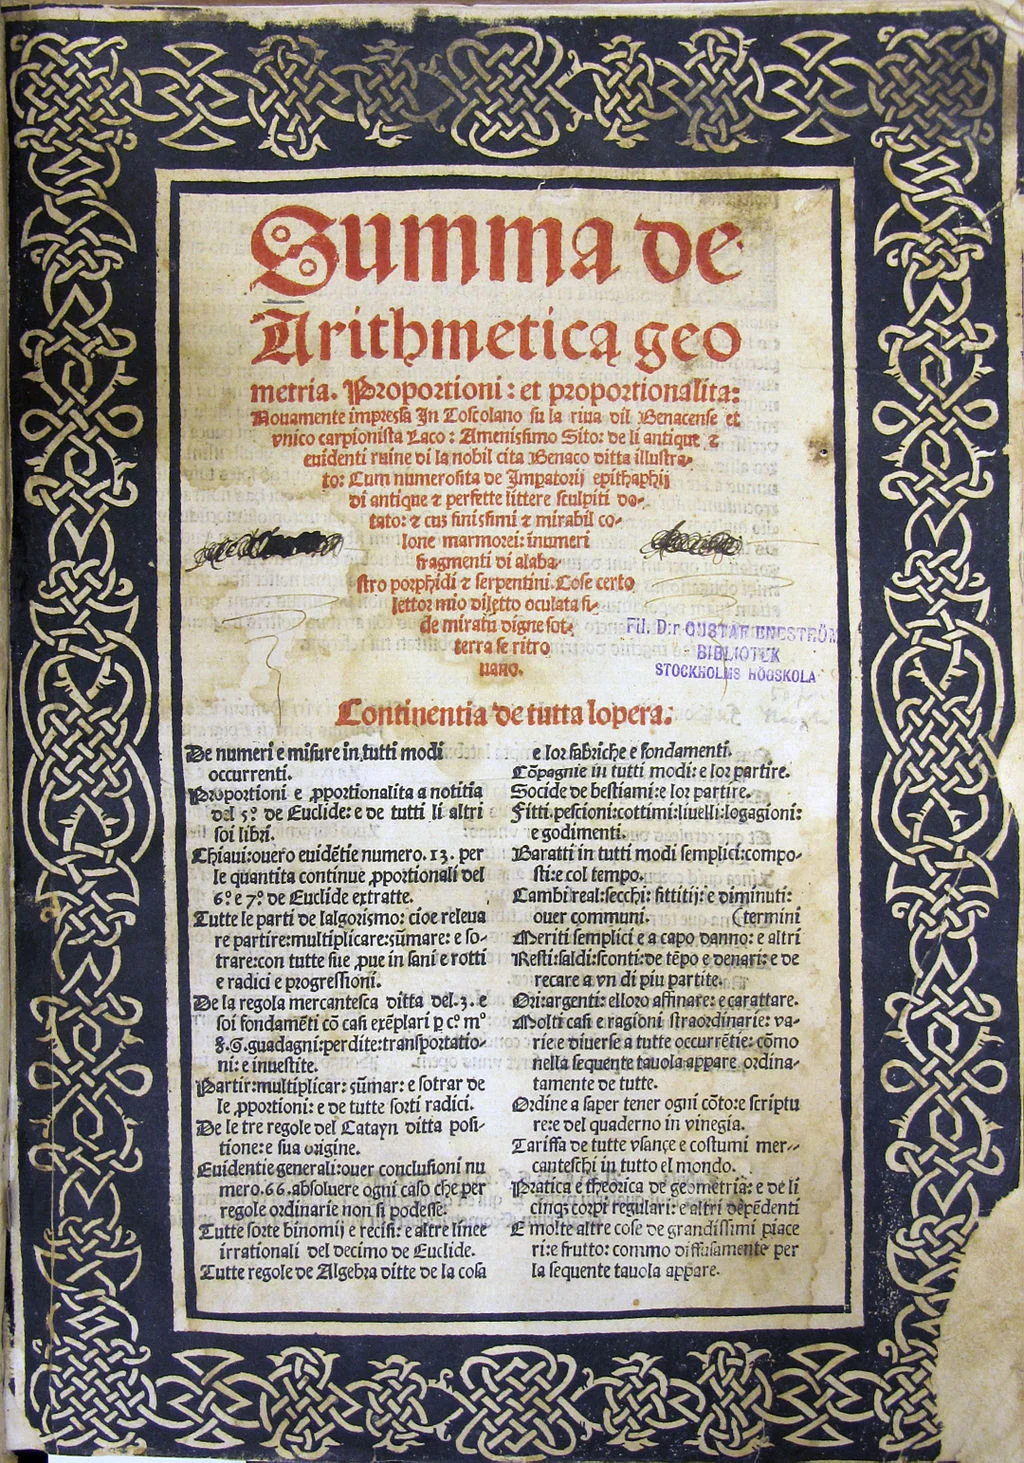 Summa de
Arithmetica geo
metria. Proportioni: et proportionalita:
Nouamente impressa In Toscolano su la riua dil Benacense et
vnico carpionista Laco: Amenissimo Sito: de li antique ⁊
euidenti ruine di la nobil cita Benaco ditta illustra-
to: Cum numerosita de Impatorij epithaphij
di antique ⁊ perfette littere sculpiti do-
tato: ⁊ cus finissimi ⁊ mirabil co-
lone marmorei: inumeri
fragmenti di alaba-
stro porphidi ⁊ serpentini. Cose certo
lettor mio diletto oculata fi-
de miratu digne sot-
terra se ritro
uano.
Fil. D:r GUSTAF ENESTRÖM
BIBLIOTEK
STOCKHOLMS HÖGSKOLA
Continentia de tutta lopera:
De numeri e misure in tutti modi
occurrenti.
Proportioni e ꝓportionalita a notitia
del 5º de Euclide: e de tutti li altri
soi libri.
Chiaui: ouero euidẽtie numero. 13. per
le quantita continue ꝓportionali del
6º e 7º de Euclide extratte.
Tutte le parti de lalgorismo: cioe releua
re partire: multiplicare: sũmare: e so-
trare: con tutte sue ꝓue in sani e rotti
e radici e progressioni.
De la regola mercantesca ditta del .3. e
soi fondamẽti cõ casi exẽplari ꝑ cº mº
guadagni: perdite: transportatio-
ni: e inuestite.
Partir: multiplicar: sũmar: e sotrar de
le ꝓportioni: e de tutte sorti radici.
De le tre regole del Catayn ditta posi-
tione: e sua origine.
Euidentie generali: ouer conclusioni nu
mero. 66. absoluere ogni caso che per
regole ordinarie non si podesse.
Tutte sorte binomij e recisi: e altre linee
irrationali del decimo de Euclide.
Tutte regole de Algebra ditte de la cosa
e lor fabriche e fondamenti.
Cõpagnie in tutti modi: e lor partire.
Socide de bestiami: e lor partire.
Fitti: pescioni: cottimi: liuelli: logagioni:
e godimenti.
Baratti in tutti modi semplici: compo-
sti: e col tempo.
Cambi real: secchi: fittitij: e diminuti:
ouer communi. (termini
Meriti semplici e a capo danno: e altri
Resti: saldi: sconti: de tẽpo e denari: e de
recare a vn di piu partite.
Ori: argenti: elloro affinare: e carattare.
Molti casi e ragioni straordinarie: va-
rie e diuerse a tutte occurrẽtie: cõmo
nella sequente tauola appare ordina-
tamente de tutte.
Ordine a saper tener ogni cõto: e scriptu
re: e del quaderno in vinegia.
Tariffa de tutte vsançe e costumi mer-
canteschi in tutto el mondo.
Pratica e theorica de geometria: e de li
cinq; corpi regulari: e altri dẽpẽdenti
E molte altre cose de grandissimi piace
ri: e frutto: commo diffusamente per
la sequente tauola appare.